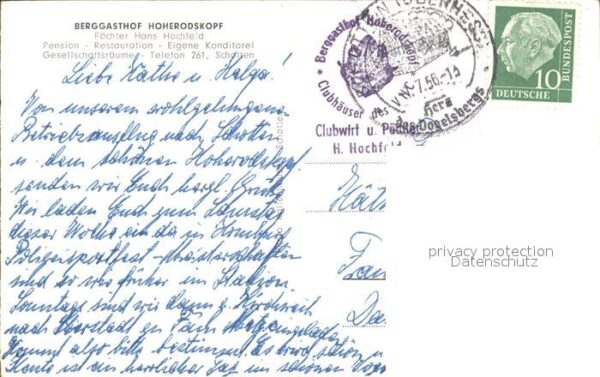 BERGGASTHOF HOHERODSKOPF
Pächter Hans Hochfeld
Pension - Restauration - Eigene Konditorei
Gesellschaftsräume - Telefon 261, Schotten
Liebe Käthe u. Helga!
Von unserem wohlgelungenen
Betriebsausflug nach Schotten
u. dem schönen Hoherodskopf
senden wir Euch herzl. Grüße
Wir laden Euch zum Samstag
dieser Woche ein da in Homburg
Polizeisportfest-Meisterschaften
sind es wie früher im Stadion.
Sonntags sind wir dann z. Kirchweih
nach Eberstadt zu Fam.
Kommt also bitte bestimmt. Es wird schön
Heute ist ein herrlicher Tag im schönen
Berggasthof Hoherodskopf
Clubhäuser des
Clubwirt u. Pächter
H. Hochfeld
(OBERHESS)
56-15
Herz
des Vogelsbergs
10
DEUTSCHE
BUNDESPOST
Käth
Frau
Da
privacy protection
Datenschutz